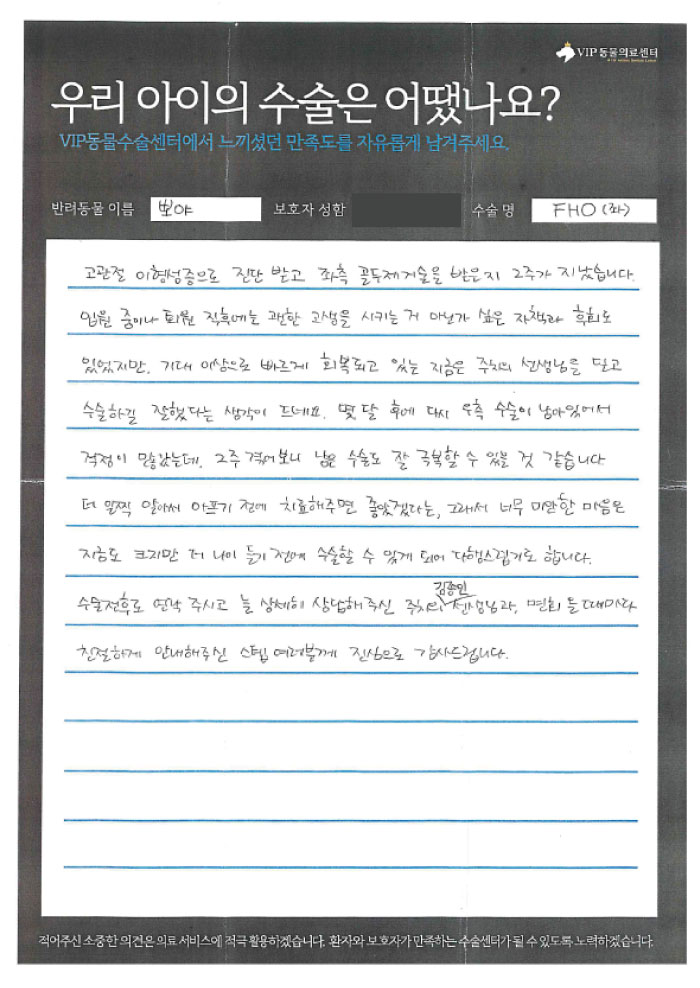 VIP 동물의료센터
우리 아이의 수술은 어땠나요?
VIP동물수술센터에서 느끼셨던 만족도를 자유롭게 남겨주세요.
반려동물 이름 뽀야 보호자 성함 수술 명 FHO (좌)
고관절 이형성증으로 진단 받고 좌측 골두제거술을 받은지 2주가 지났습니다.
입원 중이나 퇴원 직후에는 괜한 고생을 시키는 거 아닌가 싶은 자책과 후회도
있었지만, 기대 이상으로 빠르게 회복되고 있는 지금은 주치의 선생님을 믿고
수술하길 잘했다는 생각이 드네요. 몇 달 후에 다시 우측 수술이 남아있어서
걱정이 많았는데, 2주 겪어보니 남은 수술도 잘 극복할 수 있을 것 같습니다.
더 일찍 알아서 아프기 전에 치료해주면 좋았겠다는, 그래서 너무 미안한 마음은
지금도 크지만 더 나이 들기 전에 수술할 수 있게 되어 다행스럽기도 합니다.
수술전후로 연락 주시고 늘 상세히 상담해주신 주치의 김종인 선생님과, 면회 올 때마다
친절하게 안내해주신 스텝 여러분께 진심으로 감사드립니다.
적어주신 소중한 의견은 의료 서비스에 적극 활용하겠습니다. 환자와 보호자가 만족하는 수술센터가 될 수 있도록 노력하겠습니다.